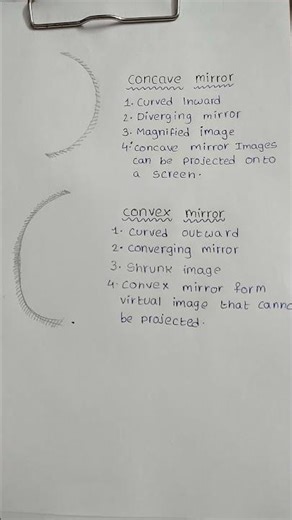 concave mirror
1. Curved Inward
2. Diverging mirror
3. Magnified image
4. concave mirror Images
can be projected onto
a screen.
convex mirror
1. Curved outward
2. Converging mirror
3. Shrunk image
4. Convex mirror form
virtual image that canno
be projected.